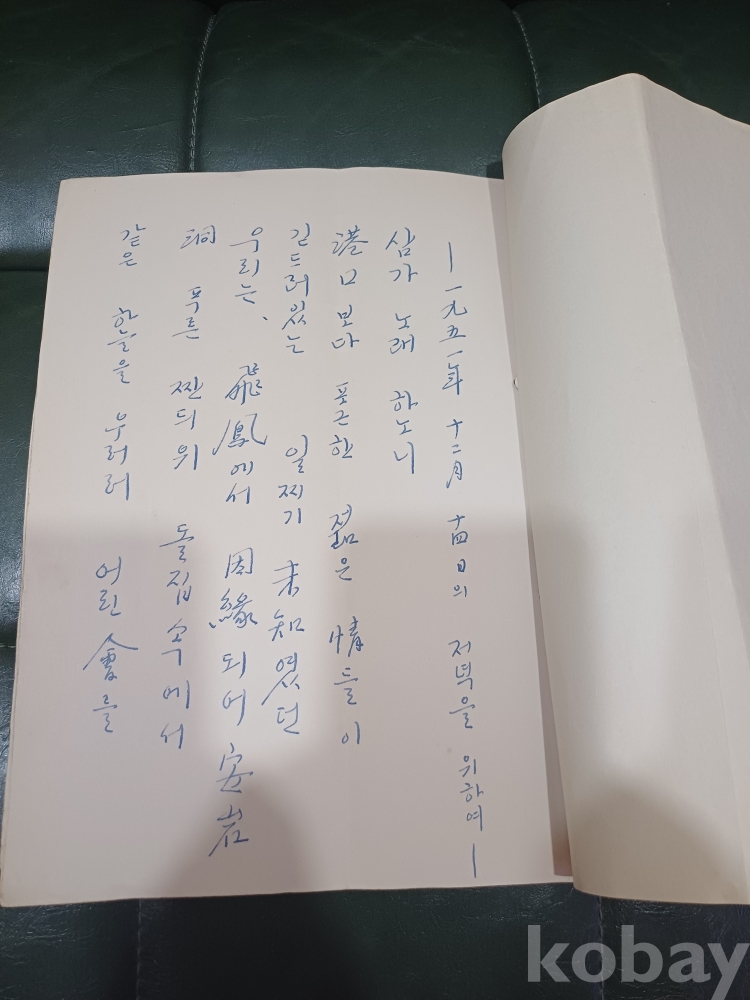 — 一九五一年 十二月 十四日의 저녁을 위하여 —
삼가 노래 하노니
港口보다 포근한 젊은 情들이
깃드러있는
일찌기 未知였던
우리는、 飛鳳에서 因緣되어 安岩
洞 푸른 짠듸위 돌집속에서
같은 하늘을 우러러 어린 會를
kobay